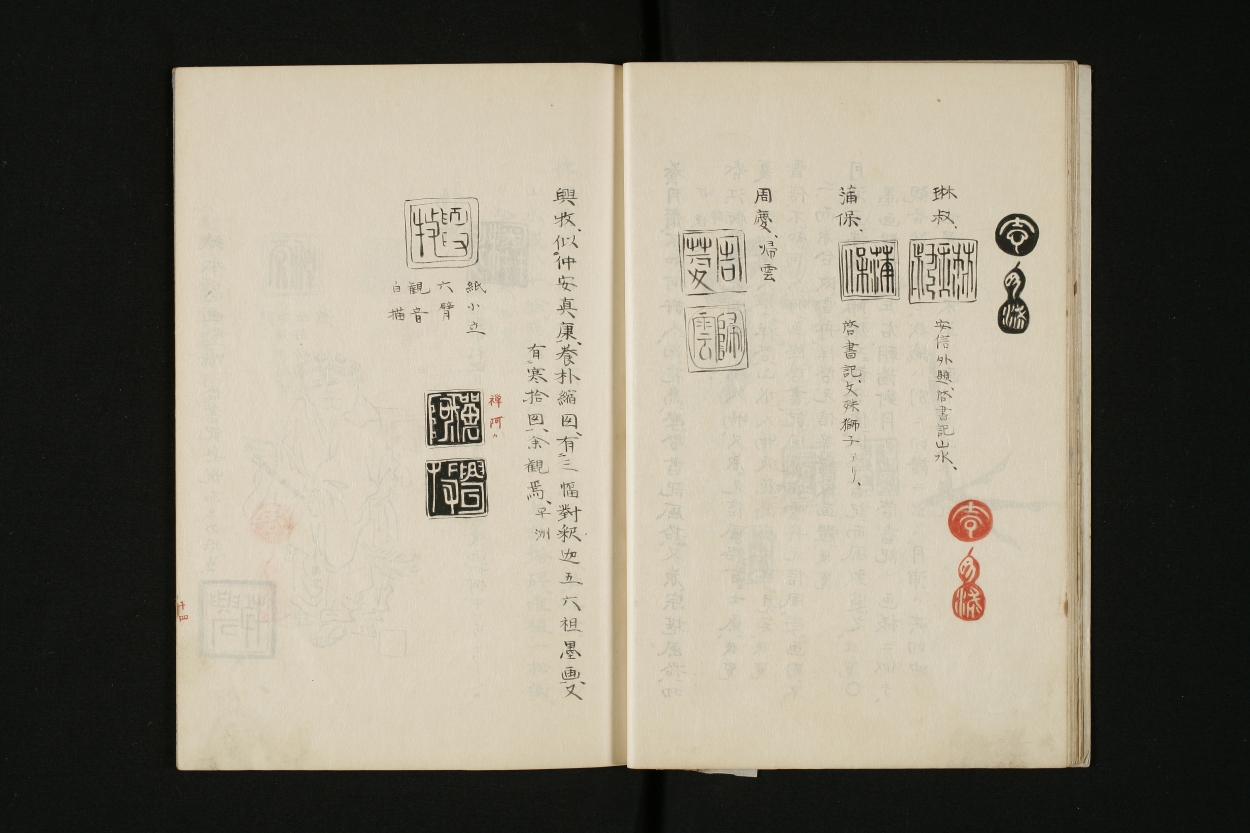 琳叔、
安信外題、啓書記山水、
蒲保、
啓書記、文殊獅子ナリ、
蒲保
周慶、帰雲
周慶
歸雲
興牧、似仲安真康、養朴縮図、有三幅對釈迦五六祖墨画、又
有寒拾図、余観焉、平洲
紙小立
六臂
観音
白描
禅阿
十四